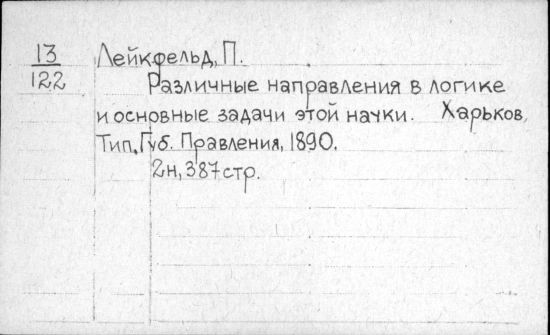 13 Лейкфельд, П.
122 Различные направления в логике
и основные задачи этой науки. Харьков,
Тип. Губ. Правления, 1890.
2н, 387 стр.